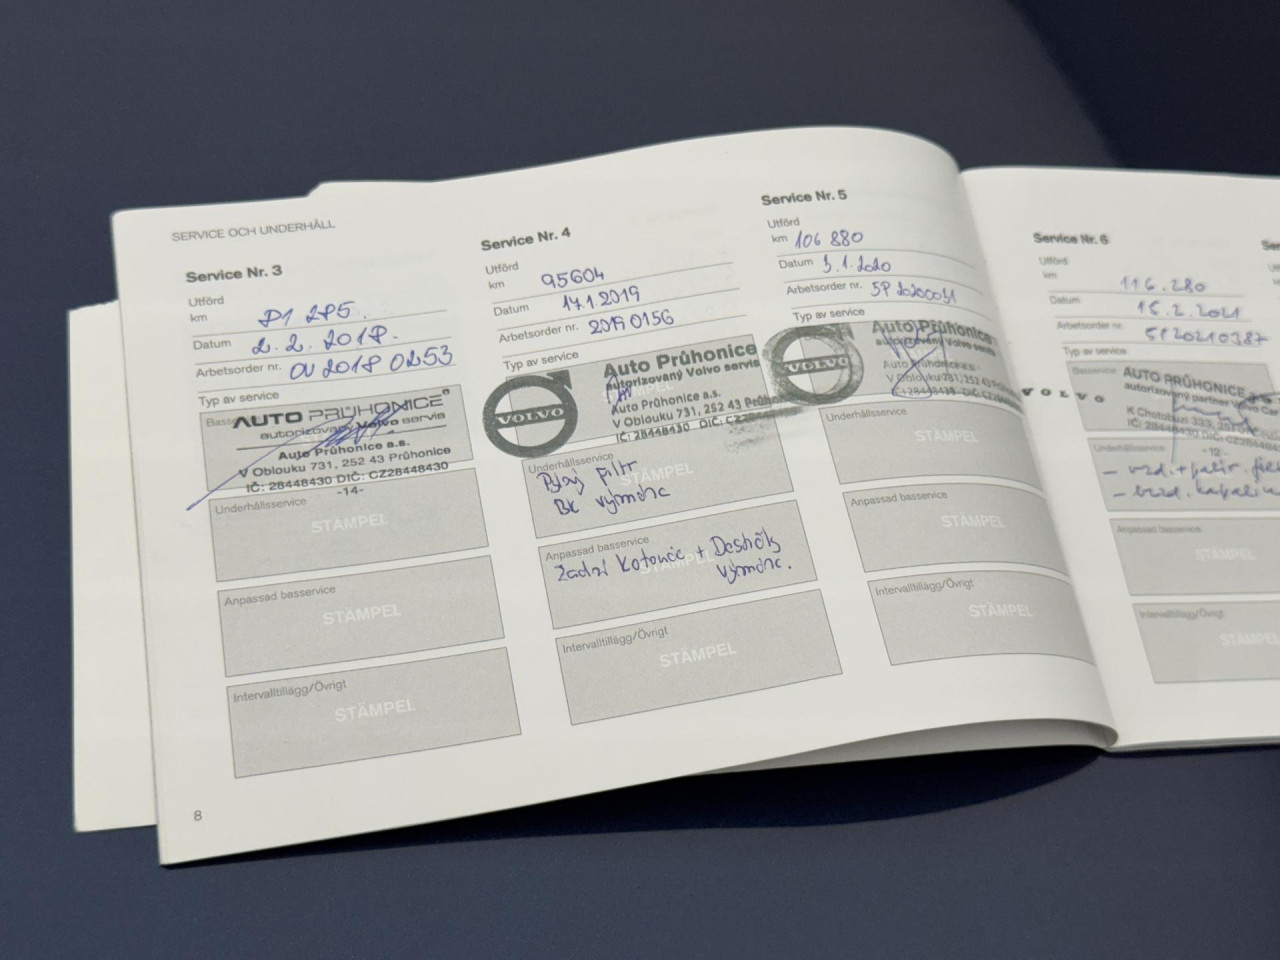 SERVICE OCH UNDERHÅLL
Service Nr. 3
Utförd
km 81 285.
Datum 2. 2. 2018.
Arbetsorder nr. OV 2018 0253
Typ av service
AUTO PRŮHONICE
autorizovaný Volvo servis
Auto Průhonice a.s.
V Oblouku 731, 252 43 Průhonice
IČ: 28448430 DIČ: CZ28448430
-14-
Underhållsservice
STÄMPEL
Anpassad basservice
STÄMPEL
Intervalltillägg/Övrigt
STÄMPEL
8
Service Nr. 4
Utförd
km 95604
Datum 17.1.2019
Arbetsorder nr. 2019 0156
Typ av service
VOLVO
Auto Průhonice
autorizovaný Volvo servis
Auto Průhonice a.s.
V Oblouku 731, 252 43
IČ: 28448430 DIČ:
Underhållsservice
STÄMPEL
Pylový filtr
BK výměna
Anpassad basservice
Zadní kotouče + Destičky
výměna.
Intervalltillägg/Övrigt
STÄMPEL
Service Nr. 5
Utförd
km 106 880
Datum 3.1.2020
Arbetsorder nr. SP 20200031
Typ av service
VOLVO
Auto Průhonice
autorizovaný Volvo servis
Auto Průhonice a.s.
V Oblouku 731, 252 43
Underhållsservice
STÄMPEL
Anpassad basservice
STÄMPEL
Intervalltillägg/Övrigt
STÄMPEL
Service Nr. 6
Utförd
km 116.280
Datum 15.2.2021
Arbetsorder nr. SP20210387
Typ av service
VOLVO
AUTO PRŮHONICE
autorizovaný partner
K Chotobuzi 333,
-12-
Underhållsservice
Anpassad basservice
STÄMPEL
Intervalltillägg/Övrigt
STÄMPEL